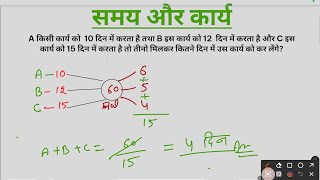 समय और कार्य
A किसी कार्य को 10 दिन में करता है तथा B इस कार्य को 12 दिन में करता है और C इस
कार्य को 15 दिन में करता है तो तीनो मिलकर कितने दिन में उस कार्य को कर लेंगे?
A – 10 6
+
B – 12 60 5
+
C – 15 4
15
A + B + C = 60/15 = 4 दिन Ans